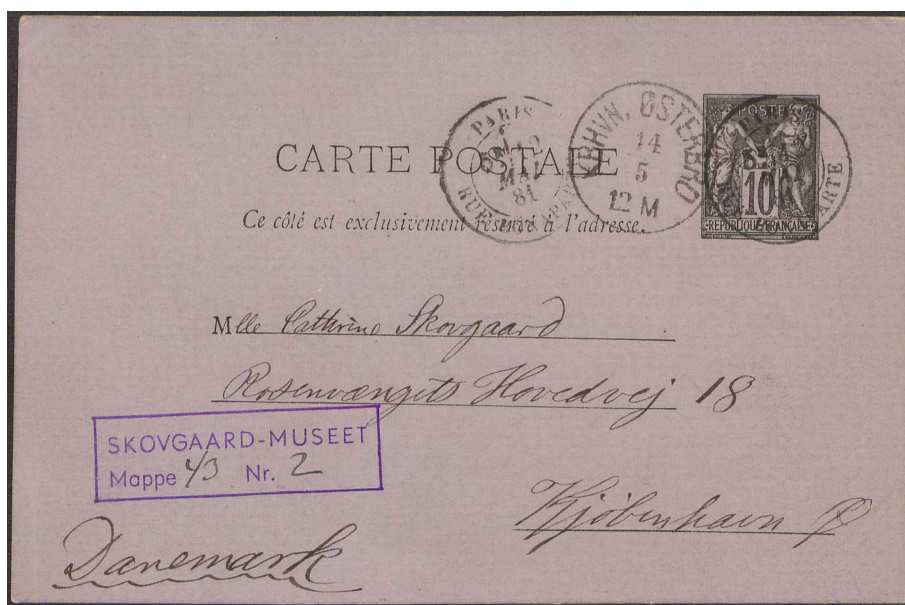 PARIS
12
MAI
81
RUE
KBHVN. ØSTERBRO
14
5
12 M
POSTE
10
REPUBLIQUE FRANÇAISE
ARTE
CARTE POSTALE
Ce côté est exclusivement réservé à l'adresse.
Mlle Cathrine Skovgaard
Rosenvængets Hovedvej 18
SKOVGAARD-MUSEET
Mappe 43 Nr. 2
Kjøbenhavn Ø
Danemark